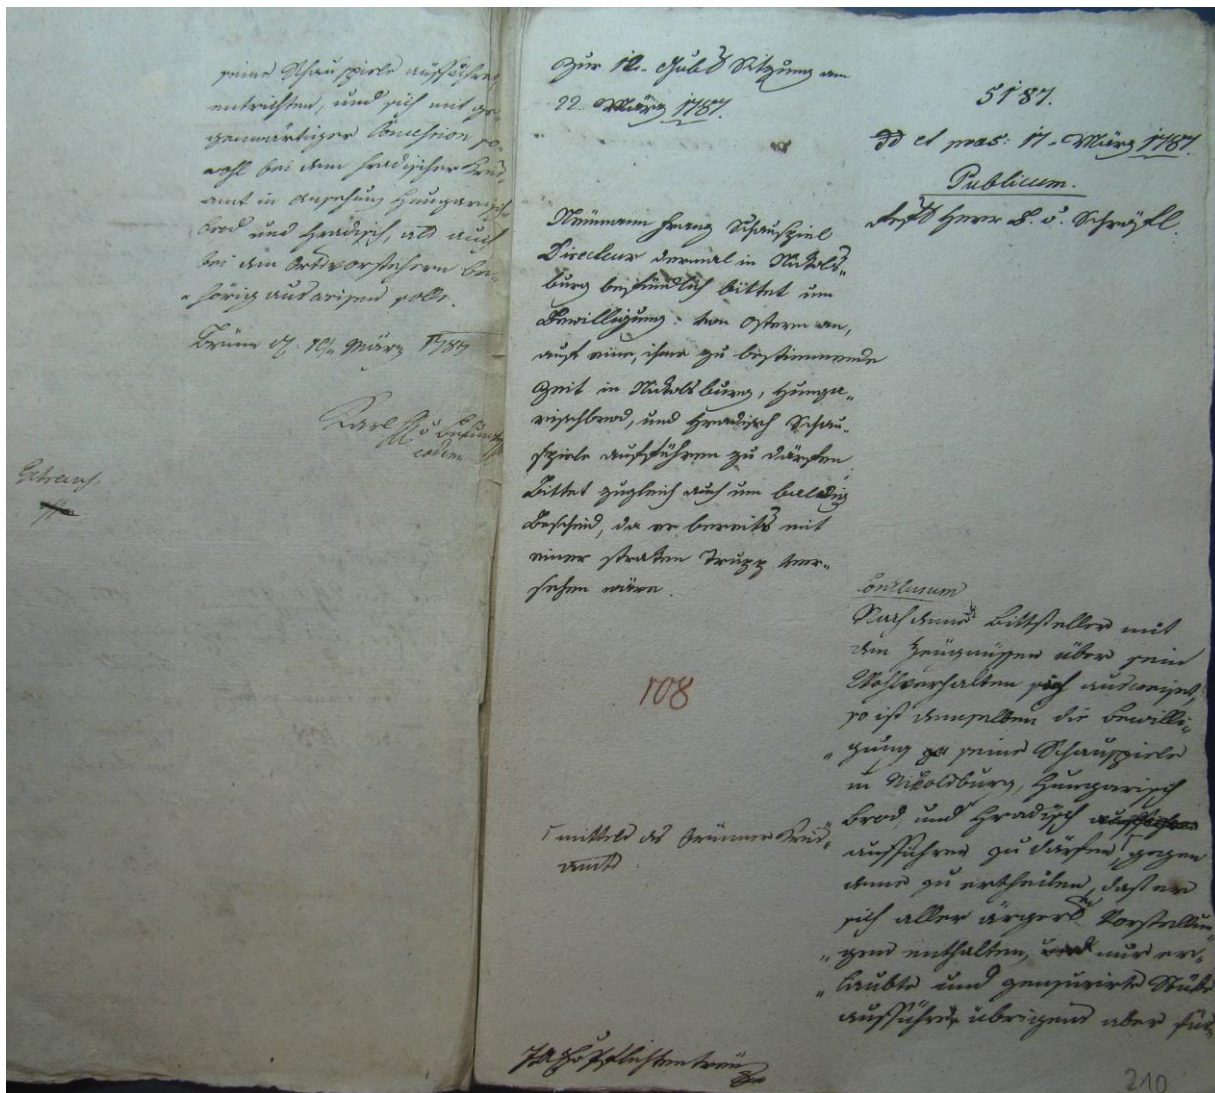 seine Schauspiele aufführen
entrichten, und sich mit ge-
genwärtiger Concession so-
wohl bei dem Hradischer Kreis-
amt in Ansehung Hungarisch-
brod und Hradisch, als auch
bei den Ortsvorstehern be-
hörig ausweisen solle.
Brünn d. März 1787
Karl
eodem
Zur 12. Gub. Sitzung am
22. März 1787.
Neümann Franz Schauspiel
Directeur dermal in Nikols-
burg befindlich bittet um
Bewilligung: von Ostern an,
auf eine, ihme zu bestimmende
Zeit in Nikolsburg, Hunga-
rischbrod, und Hradisch Schau-
spiele aufführen zu därfen
Bittet zugleich auch um baldig
Bescheid, da er bereits mit
einer starken Trupp ver-
sehen wäre.
108
mittels des Brünner Kreis-
amts
5187.
dd et præs: 17. März 1787.
Publicum.
Herr B. v. Schröfl.
Conclusum
Nachdeme Bittsteller mit
den Zeügnüssen über sein
Wohlverhalten sich ausweiset,
so ist demselben die Bewilli-
gung seine Schauspiele
in Nikolsburg, Hungarisch
brod, und Hradisch
aufführen zu därfen, gegen
deme zu ertheilen, daß er
sich aller ärgerl. Vorstellun-
gen enthalten, nur er-
laubte und censurirte Stüke
aufführe, übrigens aber für
210